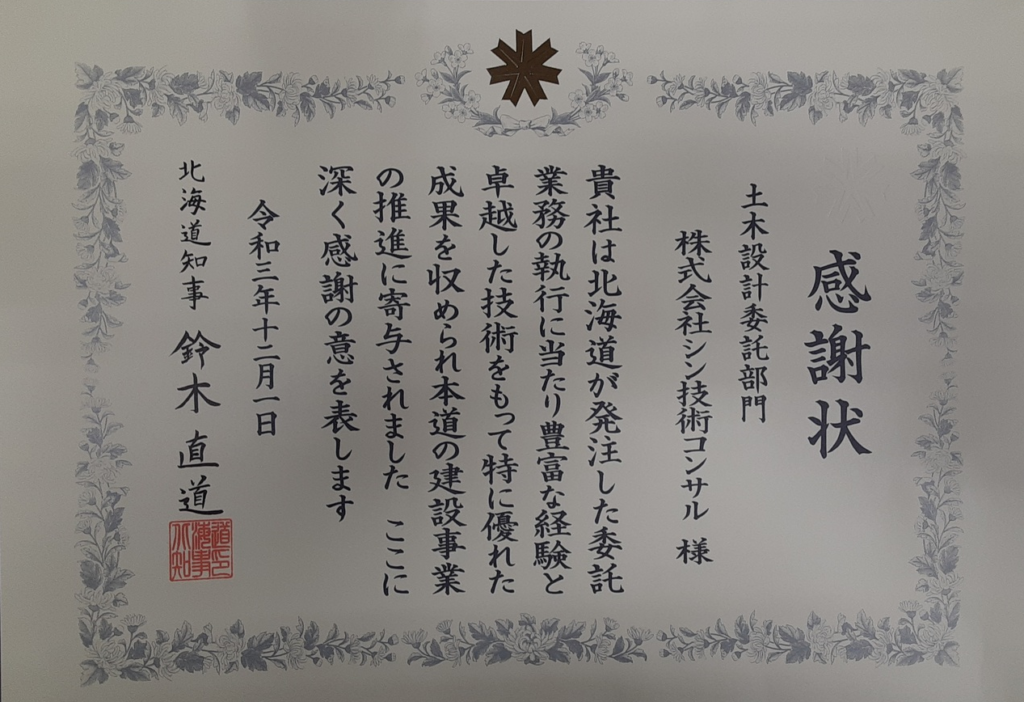 感謝状
土木設計委託部門
株式会社シン技術コンサル 様
貴社は北海道が発注した委託
業務の執行に当たり豊富な経験と
卓越した技術をもって特に優れた
成果を収められ本道の建設事業
の推進に寄与されました ここに
深く感謝の意を表します
令和三年十二月一日
北海道知事 鈴木直道
道印
海事
北知